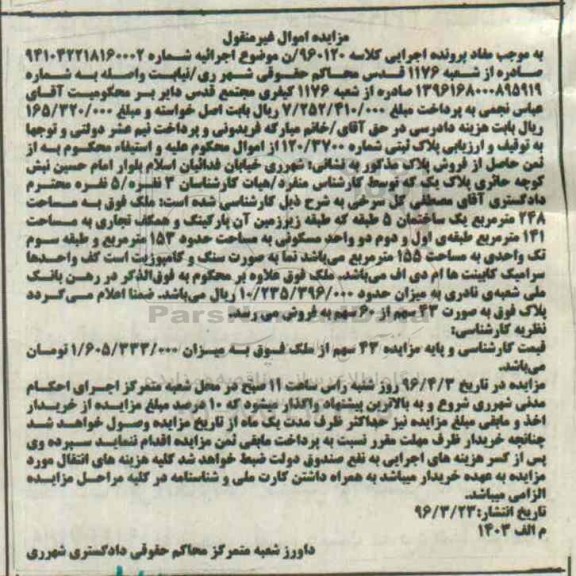 مزایده اموال غیرمنقول
به موجب مفاد پرونده اجرایی کلاسه ۹۶۰۱۲۰/ن موضوع اجرائیه شماره ۹۴۱۰۴۲۲۱۸۱۶۰۰۰۲
صادره از شعبه ۱۱۷۶ قدس محاکم حقوقی شهر ری/نیابت واصله به شماره
۱۳۹۶۱۶۸۰۰۰۸۹۵۹۱۹ صادره از شعبه ۱۱۷۶ کیفری مجتمع قدس دایر بر محکومیت آقای
عباس نجمی به پرداخت مبلغ ۷/۲۵۲/۴۱۰/۰۰۰ ریال بابت اصل خواسته و مبلغ ۱۶۵/۳۲۰/۰۰۰
ریال بابت هزینه دادرسی در حق آقای/خانم مبارکه فریدونی و پرداخت نیم عشر دولتی و توجها
به توقیف و ارزیابی پلاک ثبتی شماره ۱۲۰/۳۷۰۰ از اموال محکوم علیه و استیفاء محکوم به از
ثمن حاصل از فروش پلاک مذکور به نشانی: شهرری خیابان فدائیان اسلام بلوار امام حسین نبش
کوچه حائری پلاک یک که توسط کارشناس منفرد/هیات کارشناسان ۳ نفره/۵ نفره محترم
دادگستری آقای مصطفی گل سرخی به شرح ذیل کارشناسی شده است: ملک فوق به مساحت
۲۴۸ مترمربع یک ساختمان ۵ طبقه که طبقه زیرزمین آن پارکینگ و همکف تجاری به مساحت
۱۴۱ مترمربع طبقه‌ی اول و دوم دو واحد مسکونی به مساحت حدود ۱۵۳ مترمربع و طبقه سوم
تک واحدی به مساحت ۱۵۵ مترمربع می‌باشد نما به صورت سنگ و کامپوزیت است کف واحدها
سرامیک کابینت ها ام دی اف می‌باشد. ملک فوق علاوه بر محکوم به فوق‌الذکر در رهن بانک
ملی شعبه‌ی نادری به میزان حدود ۱۰/۲۳۵/۳۹۶/۰۰۰ ریال می‌باشد. ضمنا اعلام می‌گردد
پلاک فوق به صورت ۴۳ سهم از ۶۰ سهم به فروش می‌رسد.
نظریه کارشناسی:
قیمت کارشناسی و پایه مزایده ۴۳ سهم از ملک فوق به میزان ۱/۶۰۵/۳۳۳/۰۰۰ تومان
می‌باشد.
مزایده در تاریخ ۹۶/۴/۳ روز شنبه راس ساعت ۱۱ صبح در محل شعبه متمرکز اجرای احکام
مدنی شهرری شروع و به بالاترین پیشنهاد واگذار میشود که ۱۰ درصد مبلغ مزایده از خریدار
اخذ و مابقی مبلغ مزایده نیز حداکثر ظرف مدت یک ماه از تاریخ مزایده وصول خواهد شد
چنانچه خریدار ظرف مهلت مقرر نسبت به پرداخت مابقی ثمن مزایده اقدام ننماید سپرده وی
پس از کسر هزینه های اجرایی به نفع صندوق دولت ضبط خواهد شد کلیه هزینه های انتقال مورد
مزایده به عهده خریدار میباشد به همراه داشتن کارت ملی و شناسنامه در کلیه مراحل مزایده
الزامی میباشد.
تاریخ انتشار: ۹۶/۳/۲۳
م الف ۱۴۰۳
داورز شعبه متمرکز محاکم حقوقی دادگستری شهرری